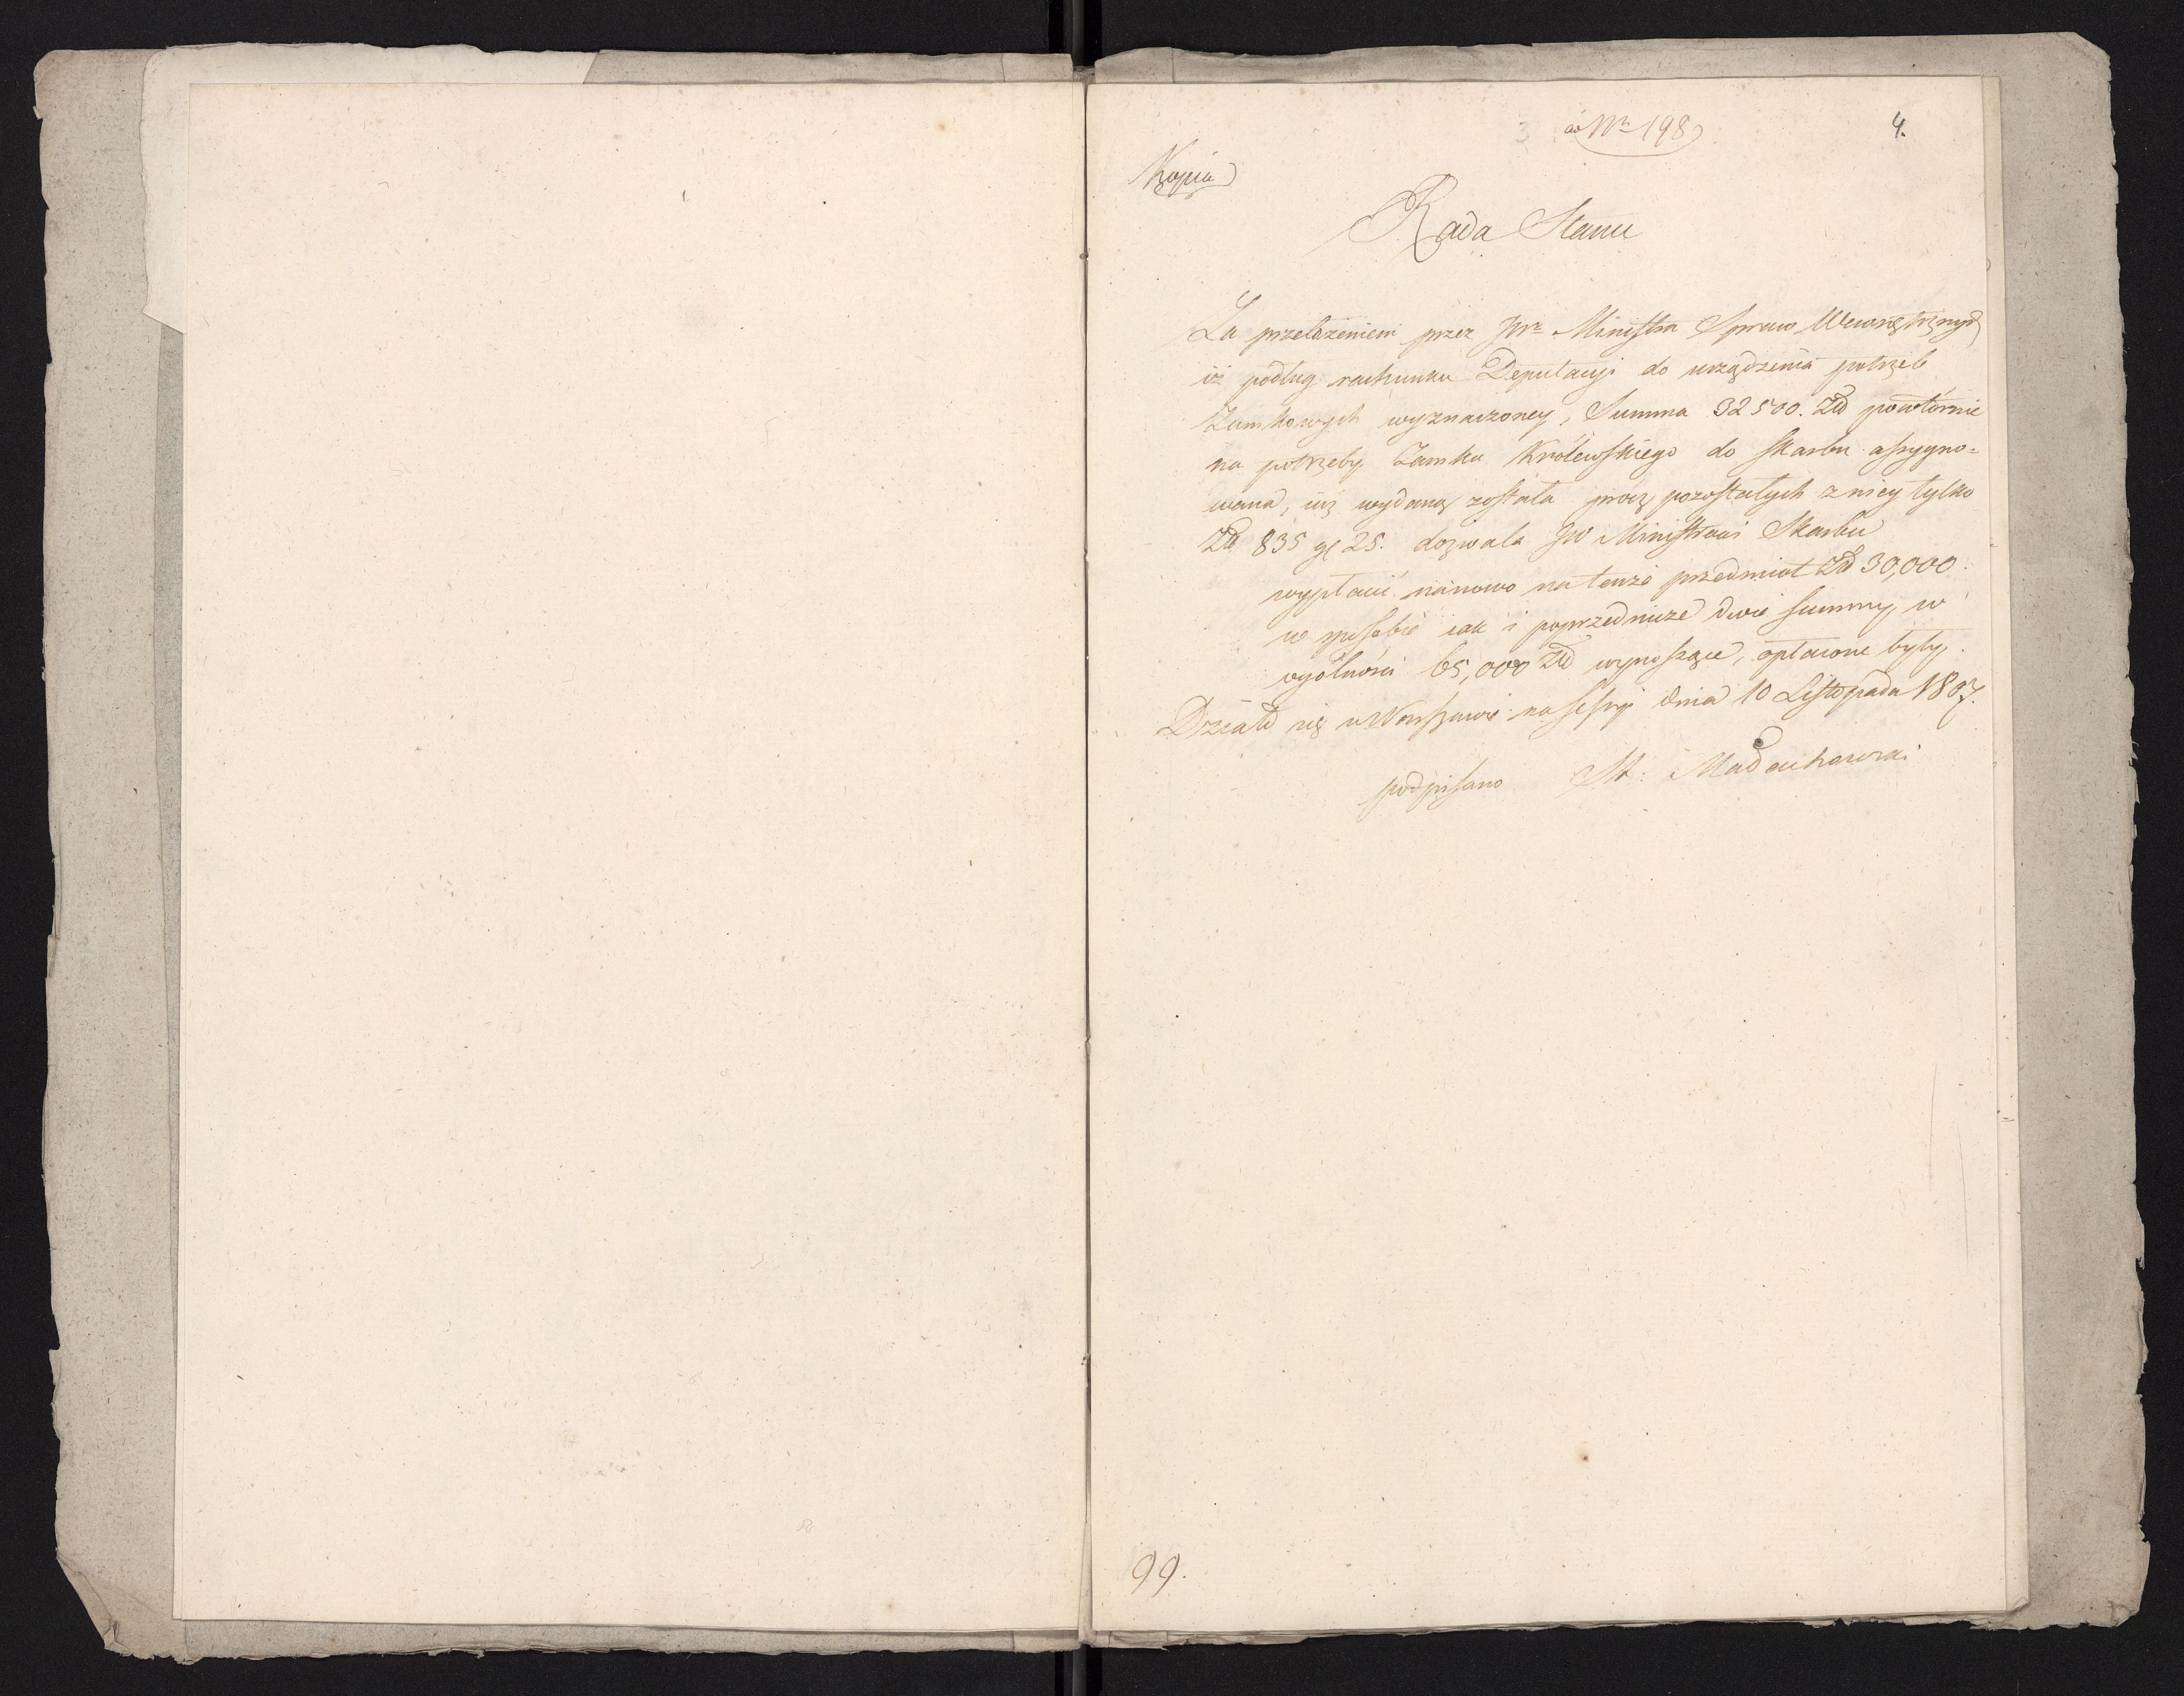 3 ad Nr 198
4.
Kopia
Rada Stanu
Za przełożeniem przez JW. Ministra Spraw Wewnętrznych
iż podług rachunku Deputacyi do urządzenia potrzeb
Zamkowych wyznaczoney, Summa 32500. Złł powtornie
na potrzeby Zamku Królewskiego do skarbu assygno=
wana, iuż wydaną została prócz pozostałych z niey tylko
Złł 835 gr 25. dozwala JW Ministrowi Skarbu
wypłacić nanowo na tenże przedmiot Złł 30,000.
w sposobie iak i poprzednicze dwie summy, w
ogólności 65,000 Złł wynoszące, opłacone były.
Działo się w Warszawie na sessyi dnia 10 Listopada 1807.
podpisano St: Małachowski
99.